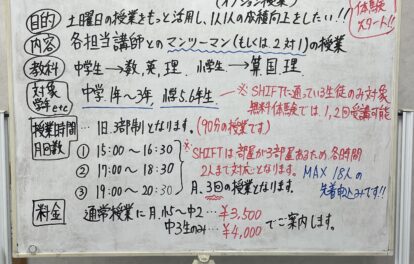 (オプション授業)
体験
スタート!!
目的 土曜日の授業をもっと活用し、1人1人の成績向上をしたい!!
内容 各担当講師とのマンツーマン(もしくは2対1)の授業
教科 中学生→数、英、理 小学生→算国理
対象
学年etc 中学1年〜3年、小学5.6年生
※SHIFTに通っている生徒のみ対象
無料体験では1,2回受講可能
授業時間
月回数 … 1日3部制となります。(90分の授業です)
① 15:00〜16:30
② 17:00〜18:30
③ 19:00〜20:30
※SHIFTは部屋が3部屋あるため各時間
2人まで対応となります。MAX 18人の
先着申込みです!!
月、3回の授業となります。
料金 通常授業に月、小5〜中2…¥3,500
中3生のみ…¥4,000 でご案内します。